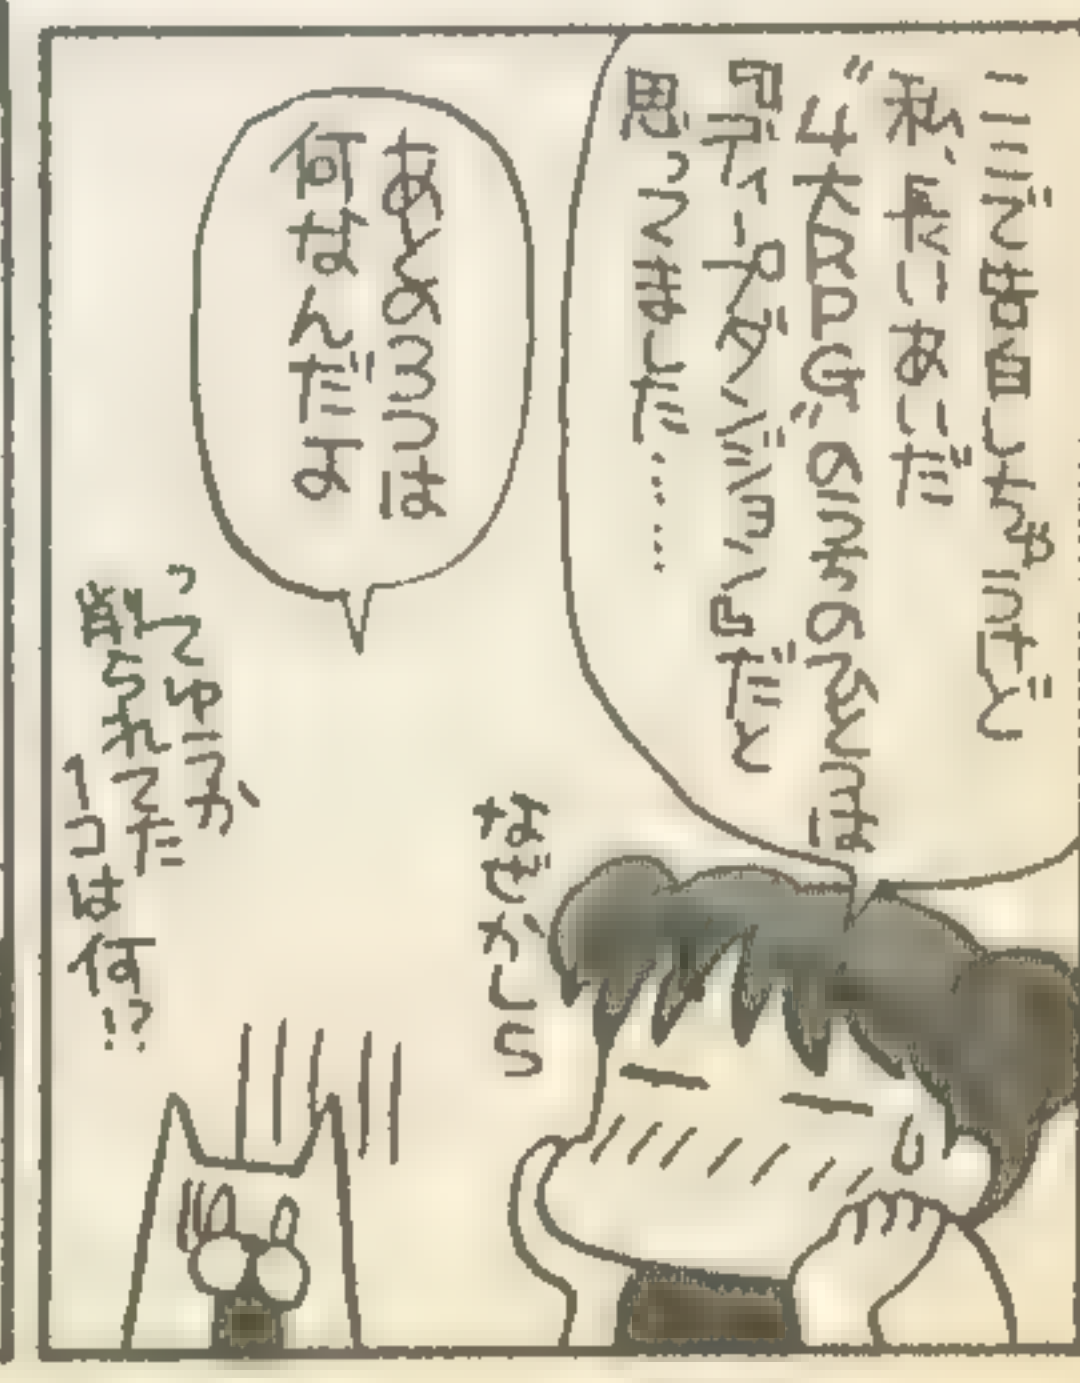 ここで告白しちゃうけど
私、長いあいだ
“4大RPG”のうちのひとつは
『ディープダンジョン』だと
思ってました……
あとの3つは
何なんだよ
なぜかしら
ってゆーか、
削られてた
1コは何!?